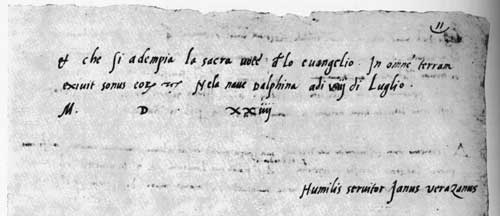 11
et che si adempia la sacra voce d'lo evangelio In omnē terram
exivit sonus eorꝫ Nela nave Dalphina adi viij di Luglio.
M. D XXiiij
Humilis servitor Janus verazanus